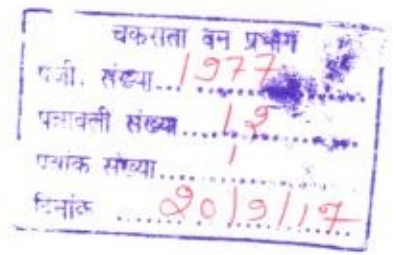 चकराता वन प्रभाग
पंजी. संख्या... 1977
पत्रावली संख्या... 12
पत्रांक संख्या... 1
दिनांक ... 20/9/17